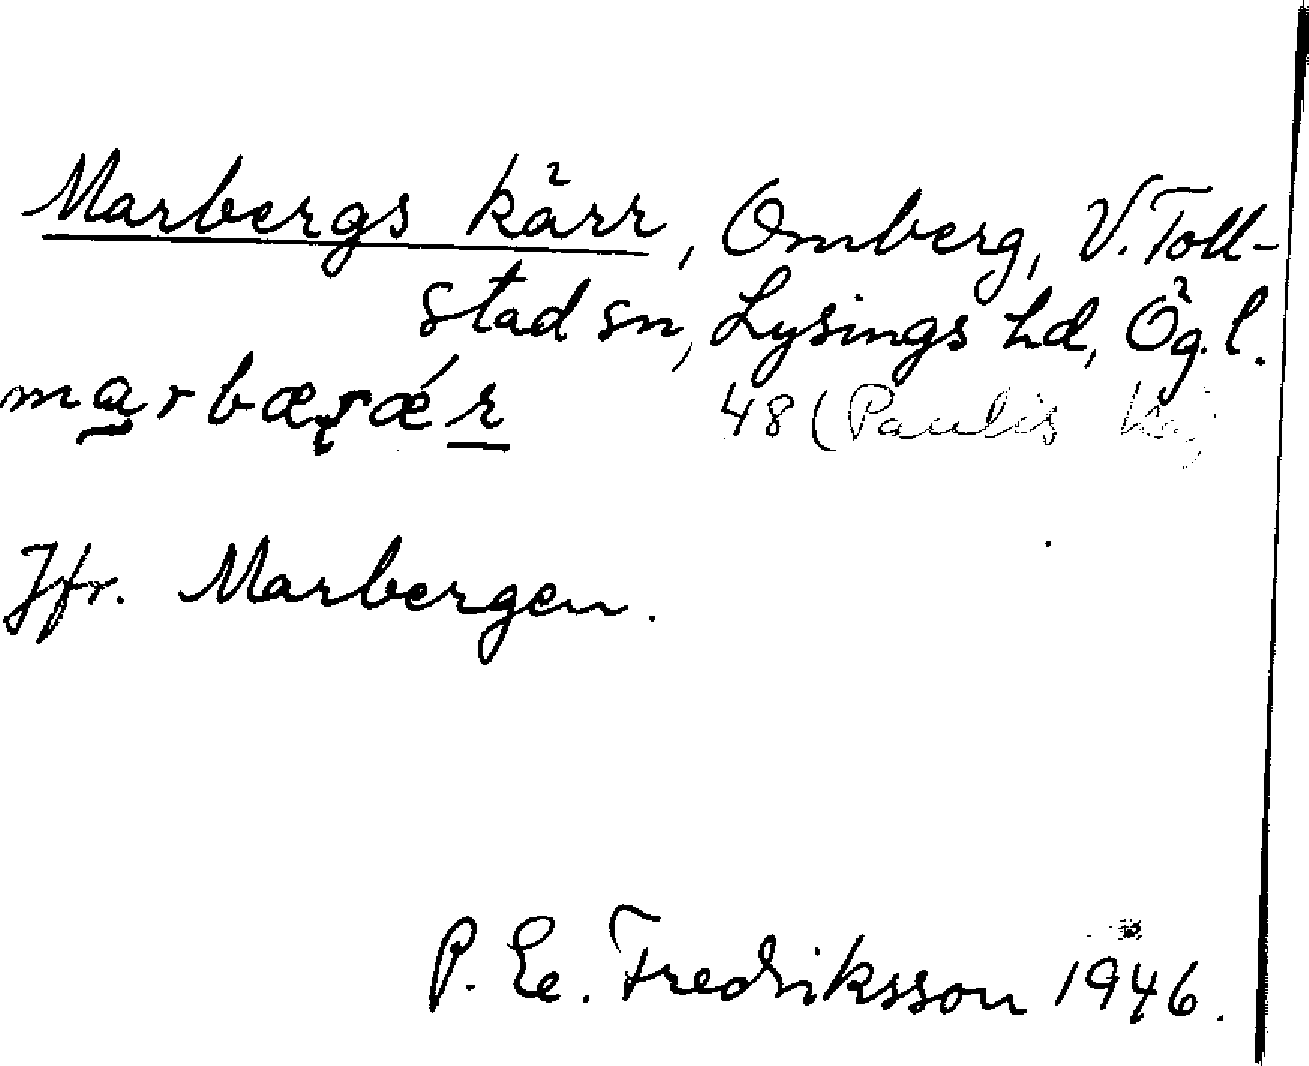 Marbergs kärr, Omberg, V. Toll-
stad sn, Lysings hd, Ög. l.
48 (Paulis
Jfr. Marbergen.
P. Ee. Fredriksson 1946.